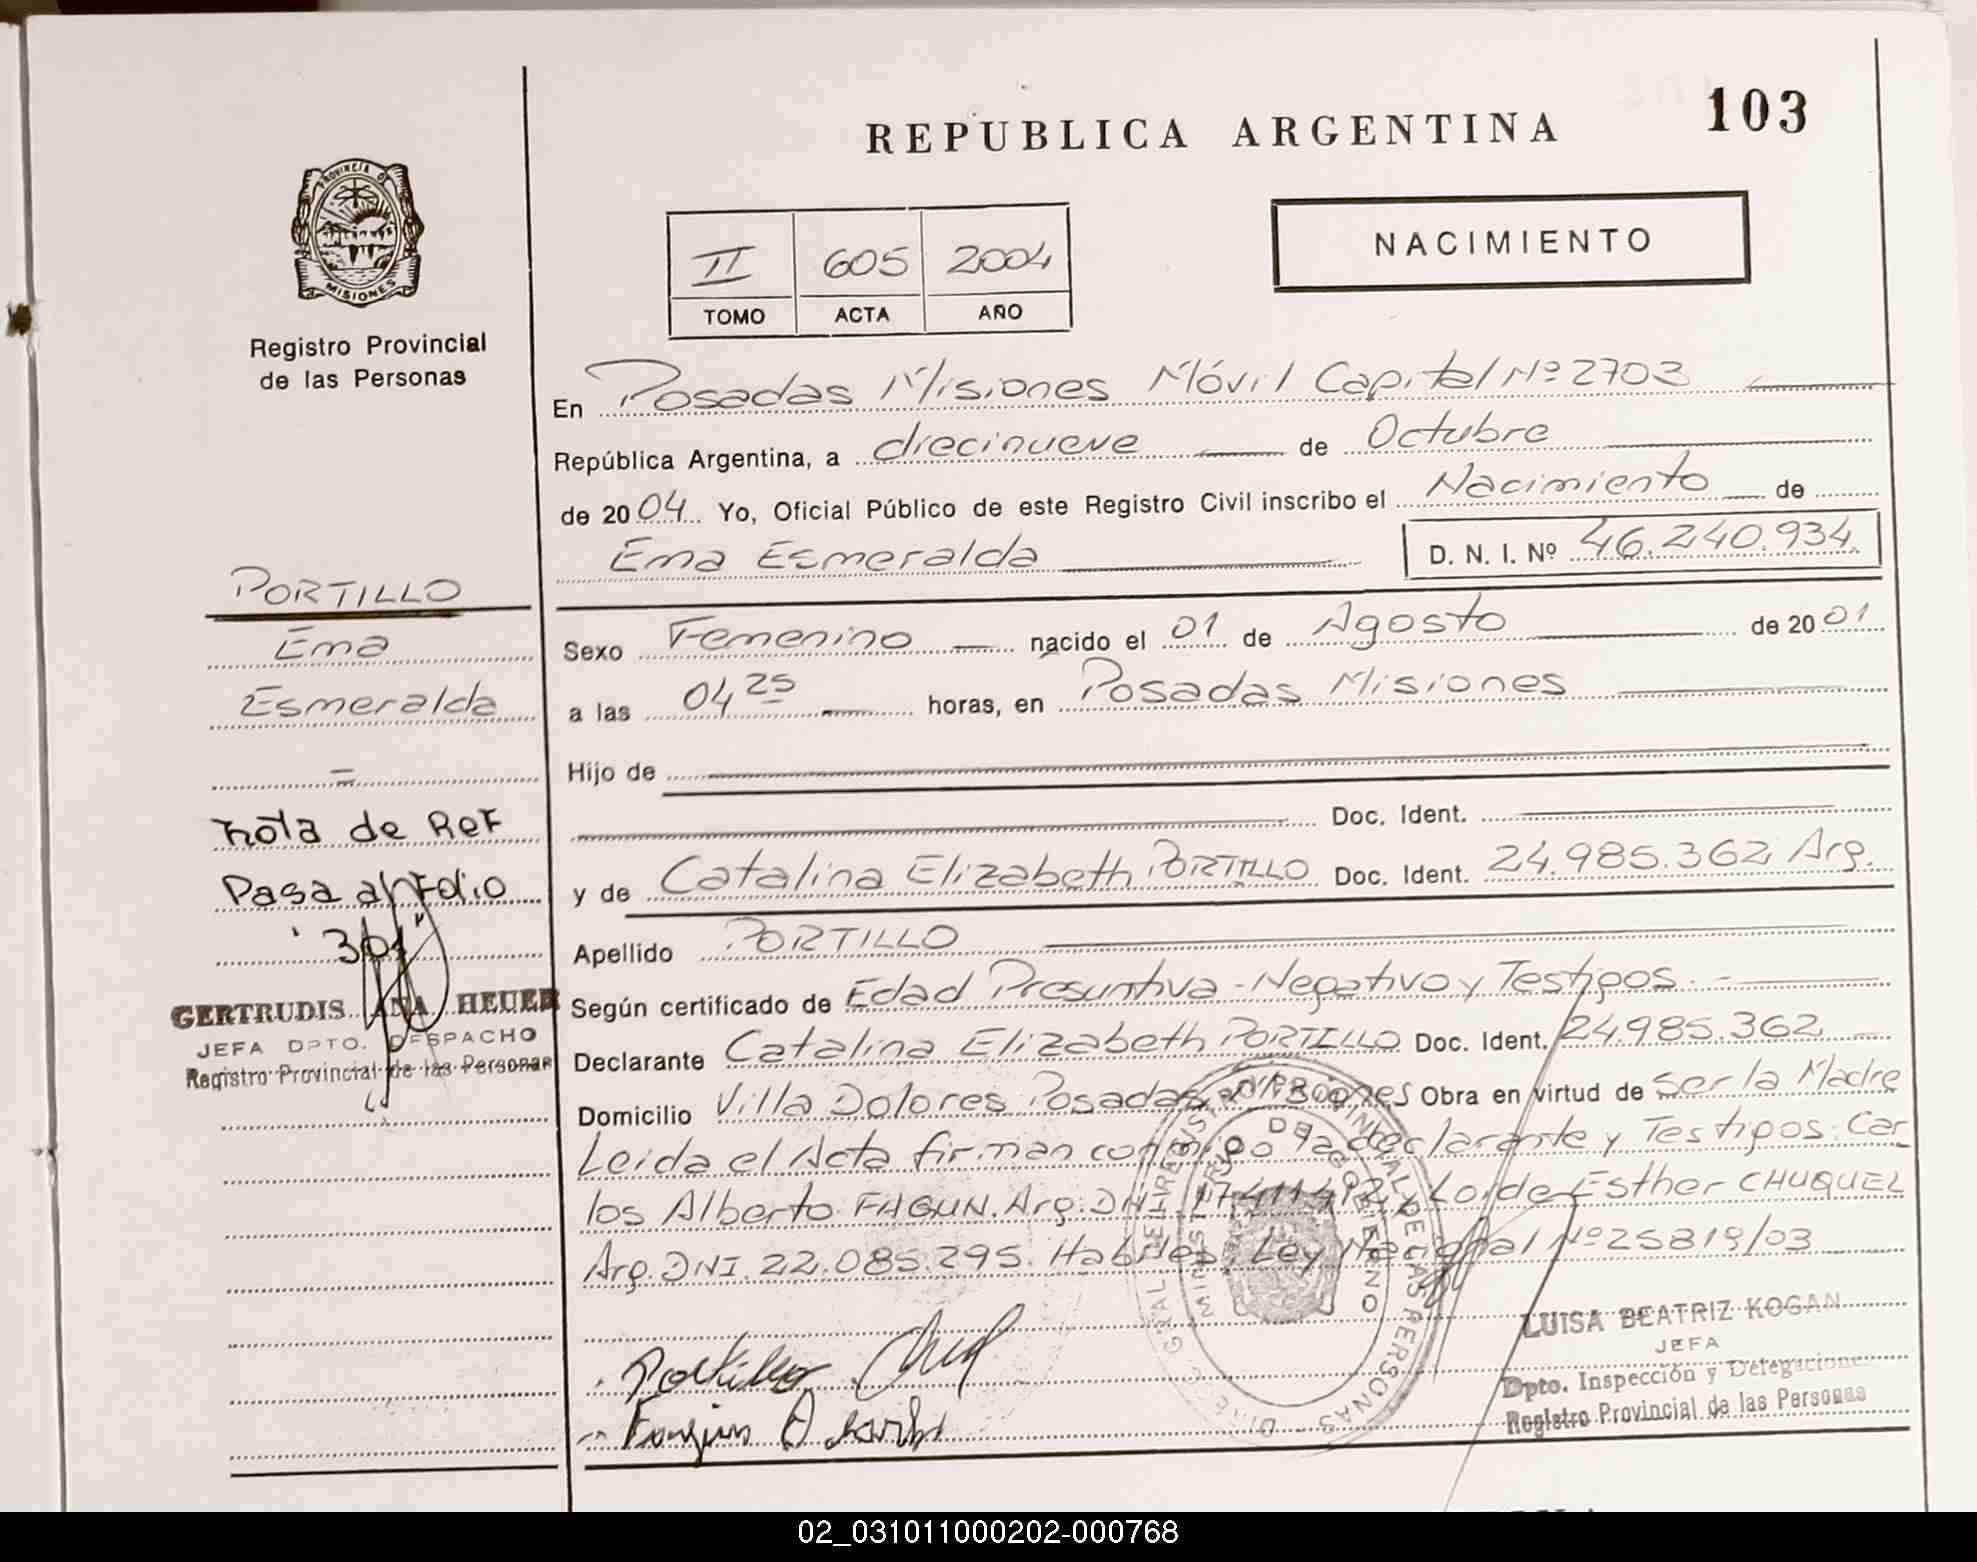 REPUBLICA ARGENTINA
103
PROVINCIA DE
MISIONES
Registro Provincial
de las Personas
II 605 2004
TOMO ACTA AÑO
NACIMIENTO
En Posadas Misiones Móvil Capital Nº 2703
República Argentina, a diecinueve de Octubre
de 2004 Yo, Oficial Público de este Registro Civil inscribo el Nacimiento de
Ema Esmeralda D. N. I. Nº 46.240.934
PORTILLO
Ema
Esmeralda
Sexo Femenino nacido el 01 de Agosto de 2001
a las 04 25 horas, en Posadas Misiones
Hijo de
Doc. Ident.
y de Catalina Elizabeth PORTILLO Doc. Ident. 24.985.362 Arg.
Apellido PORTILLO
Según certificado de Edad Presuntiva - Negativo y Testigos.
Declarante Catalina Elizabeth PORTILLO Doc. Ident. 24.985.362
Domicilio Villa Dolores Posadas Misiones Obra en virtud de ser la Madre
Leida el Acta firman conmigo la declarante y Testigos: Car
los Alberto FAGUN. Arg. DNI. y Loide Esther CHUQUEL
Arg. DNI. 22.085.295. Habiles. Ley Nacional Nº 25819/03
nota de Ref
Pasa al Folio
301
GERTRUDIS ANA HEUER
JEFA DPTO. DESPACHO
Registro Provincial de las Personas
Portillo
LUISA BEATRIZ KOGAN
JEFA
Dpto. Inspección y Delegaciones
Registro Provincial de las Personas
02_031011000202-000768